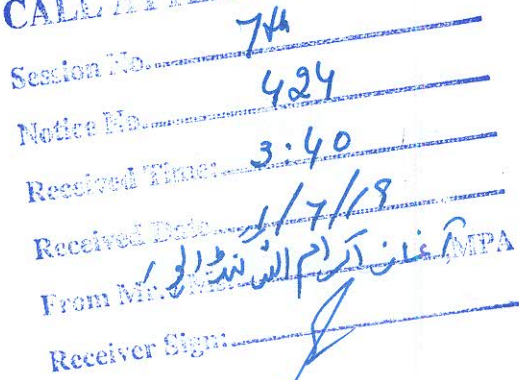 CALL ATTE
Session No. 7th
Notice No. 424
Received Time: 3:40
Received Date 1/7/19
From Mr. / Ms. آغاز اکرام اللہ گنڈاپور MPA
Receiver Sign: